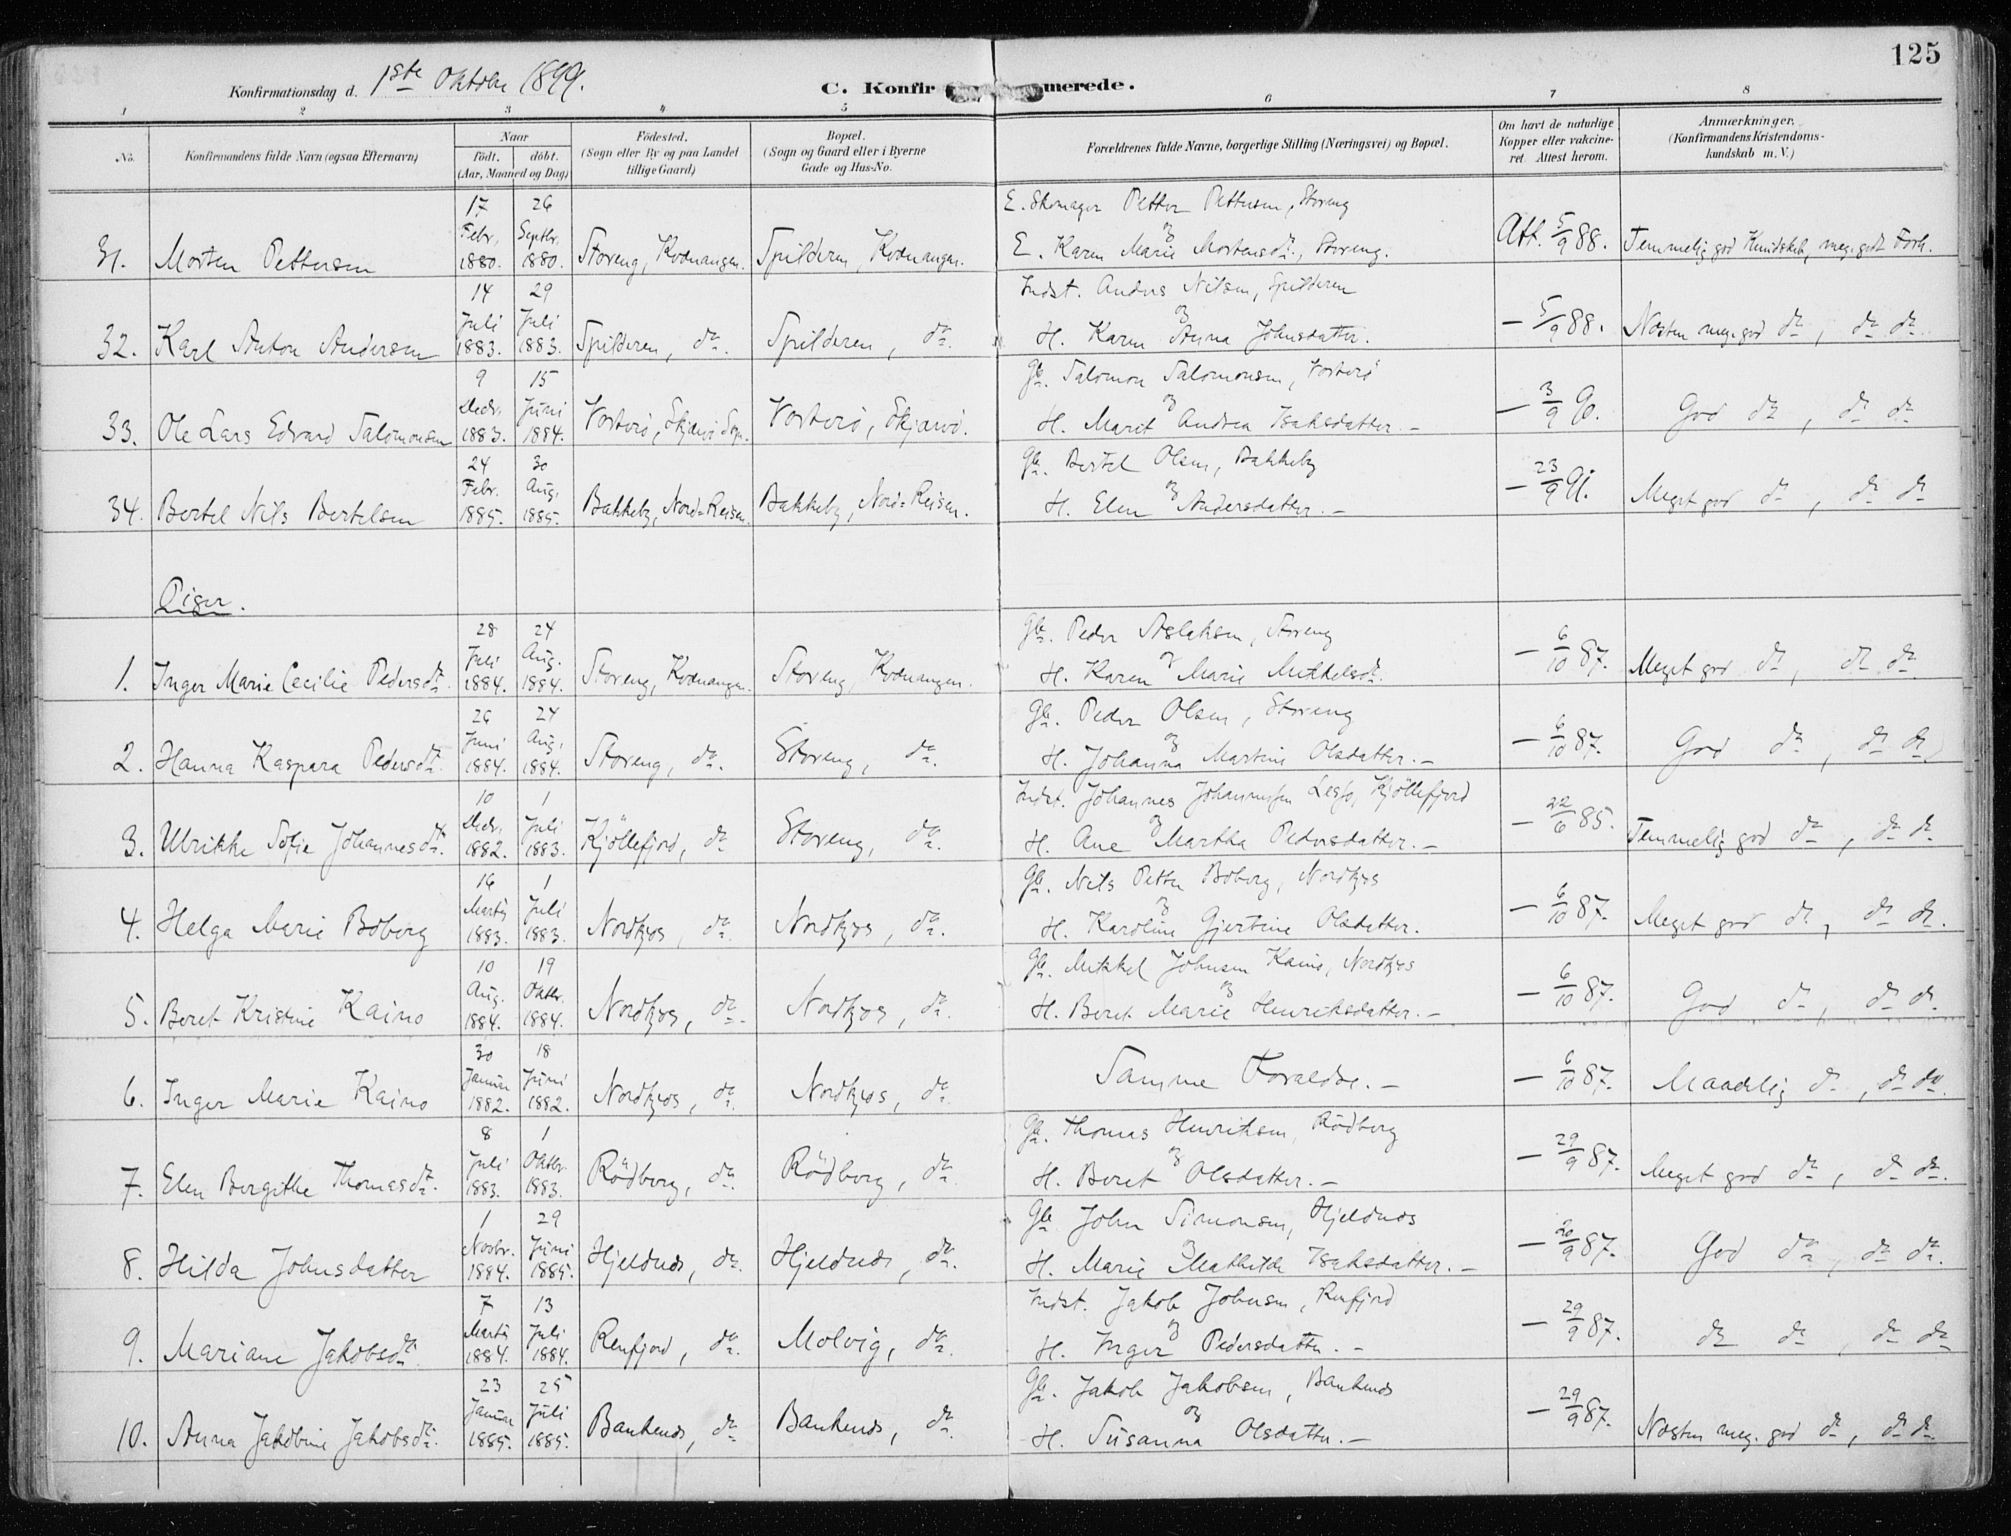 125
Konfirmationsdag d. 1ste Oktober 1899. C. Konfirmerede.
1 2 3 4 5 6 7 8
No. Konfirmandens fulde Navn (ogsaa Efternavn) Naar født. døbt. (Aar, Maaned og Dag) Fødested. (Sogn eller By og paa Landet tillige Gaard) Bopæl. (Sogn og Gaard eller i Byerne Gade og Hus-No. Forældrenes fulde Navne, borgerlige Stilling (Næringsvei) og Bopæl. Om havt de naturlige Kopper eller vakcineret. Attest herom. Anmærkninger. (Konfirmandens Kristendomskundskab m. V.)
31. Morten Pettersen 17 Febr. 1880. 26 Septbr. 1880. Storeng, Kvænangen. Spilderen, Kvænangen. E. Skomager Petter Pettersen, Storeng og E. Karen Marie Mortensdtr., Storeng. Att. 5/9 88. Temmelig god Kundskab, meg. godt Forh.
32. Karl Anton Andersen 14 Juli 1883. 29 Juli 1883. Spilderen, do. Spilderen, do. Indst. Anders Nilsen, Spilderen og H. Karen Anna Johnsdatter. — 5/9 88. Næsten meg. god do, do do.
33. Ole Lars Edvard Salomonsen 9 Decbr. 1883. 15 Juni 1884. Vorterø, Skjærvø Sogn. Vorterø, Skjærvø. Gb. Salomon Salomonsen, Vorterø og H. Marit Andrea Isaksdatter. — 3/9 90. God do, do do
34. Bertel Nils Bertelsen 24 Febr. 1885. 30 Aug. 1885. Bakkeby, Nord-Reisen. Bakkeby, Nord-Reisen. Gb. Bertel Olsen, Bakkeby og H. Elen Andersdatter. — 23/9 91. Meget god do, do do
Piger.
1. Inger Marie Cecilie Pedersdtr. 28 Juli 1884. 24 Aug. 1884. Storeng, Kvænangen. Storeng, Kvænangen. Gb. Peder Aslaksen, Storeng og H. Karen Marie Mikkelsdtr. — 6/10 87. Meget god do, do do.
2. Hanna Kaspara Pedersdtr. 26 Juni 1884. 24 Aug. 1884. Storeng, do. Storeng, do. Gb. Peder Olsen, Storeng og H. Johanna Martine Olsdatter. — 6/10 87. God do, do do
3. Ulrikke Sofie Johannesdtr. 10 Decbr. 1882. 1 Juli 1883. Kjöllefjord, do Storeng, do. Indst. Johannes Johannessen, Kjöllefjord og H. Ane Martha Pedersdatter. — 22/6 85. Temmelig god do, do do
4. Helga Marie Boberg 16 Marts 1883. 1 Juli 1883. Nordkjos, do. Nordkjos, do. Gb. Nils Petter Boberg, Nordkjos og H. Karoline Gjertine Olsdatter. — 6/10 87. Meget god do, do do.
5. Beret Kristine Kaino 10 Aug. 1884. 19 Oktbr. 1884. Nordkjos, do. Nordkjos, do. Gb. Mikkel Johnsen Kaino, Nordkjos og H. Beret Marie Henriksdatter. — 6/10 87. God do, do do.
6. Inger Marie Kaino 30 Januar 1882. 18 Juni 1882. Nordkjos, do. Nordkjos, do. Samme Forældre. — 6/10 87. Maadelig do, do do.
7. Elen Bergithe Thomasdtr. 8 Juli 1883. 1 Oktbr. 1883. Rödberg, do. Rödberg, do. Gb. Thomas Henriksen, Rödberg og H. Beret Olsdatter. — 29/9 87. Meget god do, do do.
8. Hilda Johnsdatter 1 Novbr. 1884. 29 Juni 1885. Hjeldnes, do. Hjeldnes, do. Gb. John Simonsen, Hjeldnes og H. Marie Mathilde Isaksdatter. — 20/9 87. God do, do do.
9. Mariane Jakobsdtr. 7 Marts 1884. 13 Juli 1884. Renfjord, do. Molvig, do. Indst. Jakob Johnsen, Renfjord og H. Inger Pedersdatter. — 29/9 87. do do, do do
10. Anna Jakobine Jakobsdtr. 23 Januar 1885. 25 Juli 1885. Bankenes, do Bankenes, do. Gb. Jakob Jakobsen, Bankenes og H. Susanna Olsdatter. — 29/9 87. Næsten meg. god do, do do.